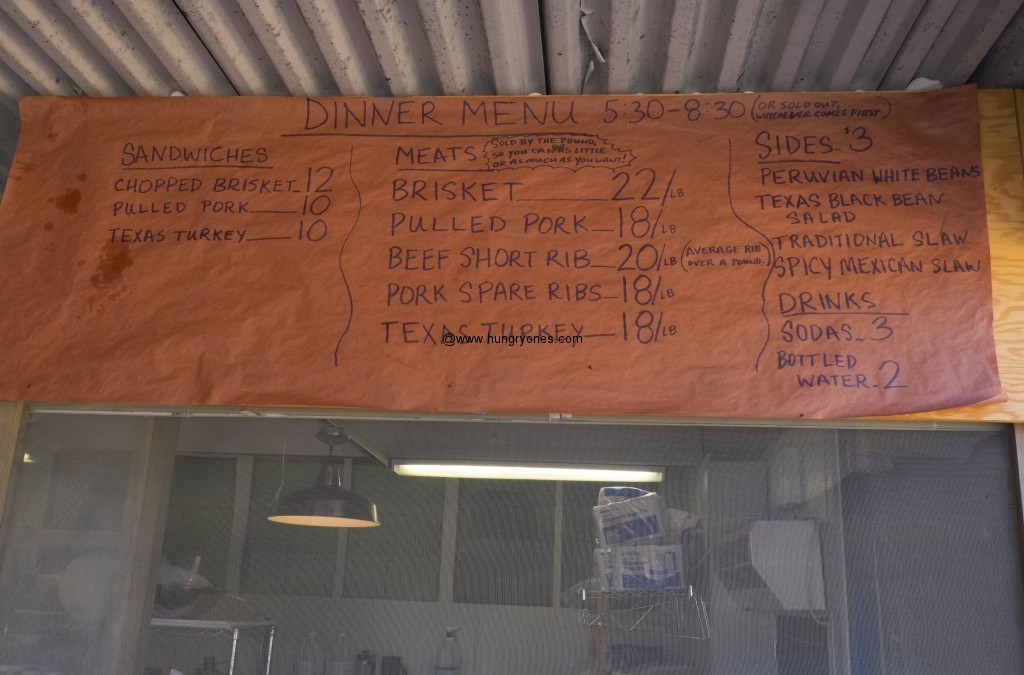 DINNER MENU 5:30-8:30 (OR SOLD OUT, WHICHEVER COMES FIRST)
SANDWICHES
CHOPPED BRISKET 12
PULLED PORK 10
TEXAS TURKEY 10
MEATS
SOLD BY THE POUND,
SO YOU CAN AS LITTLE
OR AS MUCH AS YOU WANT!
BRISKET 22/LB
PULLED PORK 18/LB
BEEF SHORT RIB 20/LB (AVERAGE RIB OVER A POUND)
PORK SPARE RIBS 18/LB
TEXAS TURKEY 18/LB
SIDES $3
PERUVIAN WHITE BEANS
TEXAS BLACK BEAN
SALAD
TRADITIONAL SLAW
SPICY MEXICAN SLAW
DRINKS
SODAS 3
BOTTLED
WATER 2
@www.hungryones.com